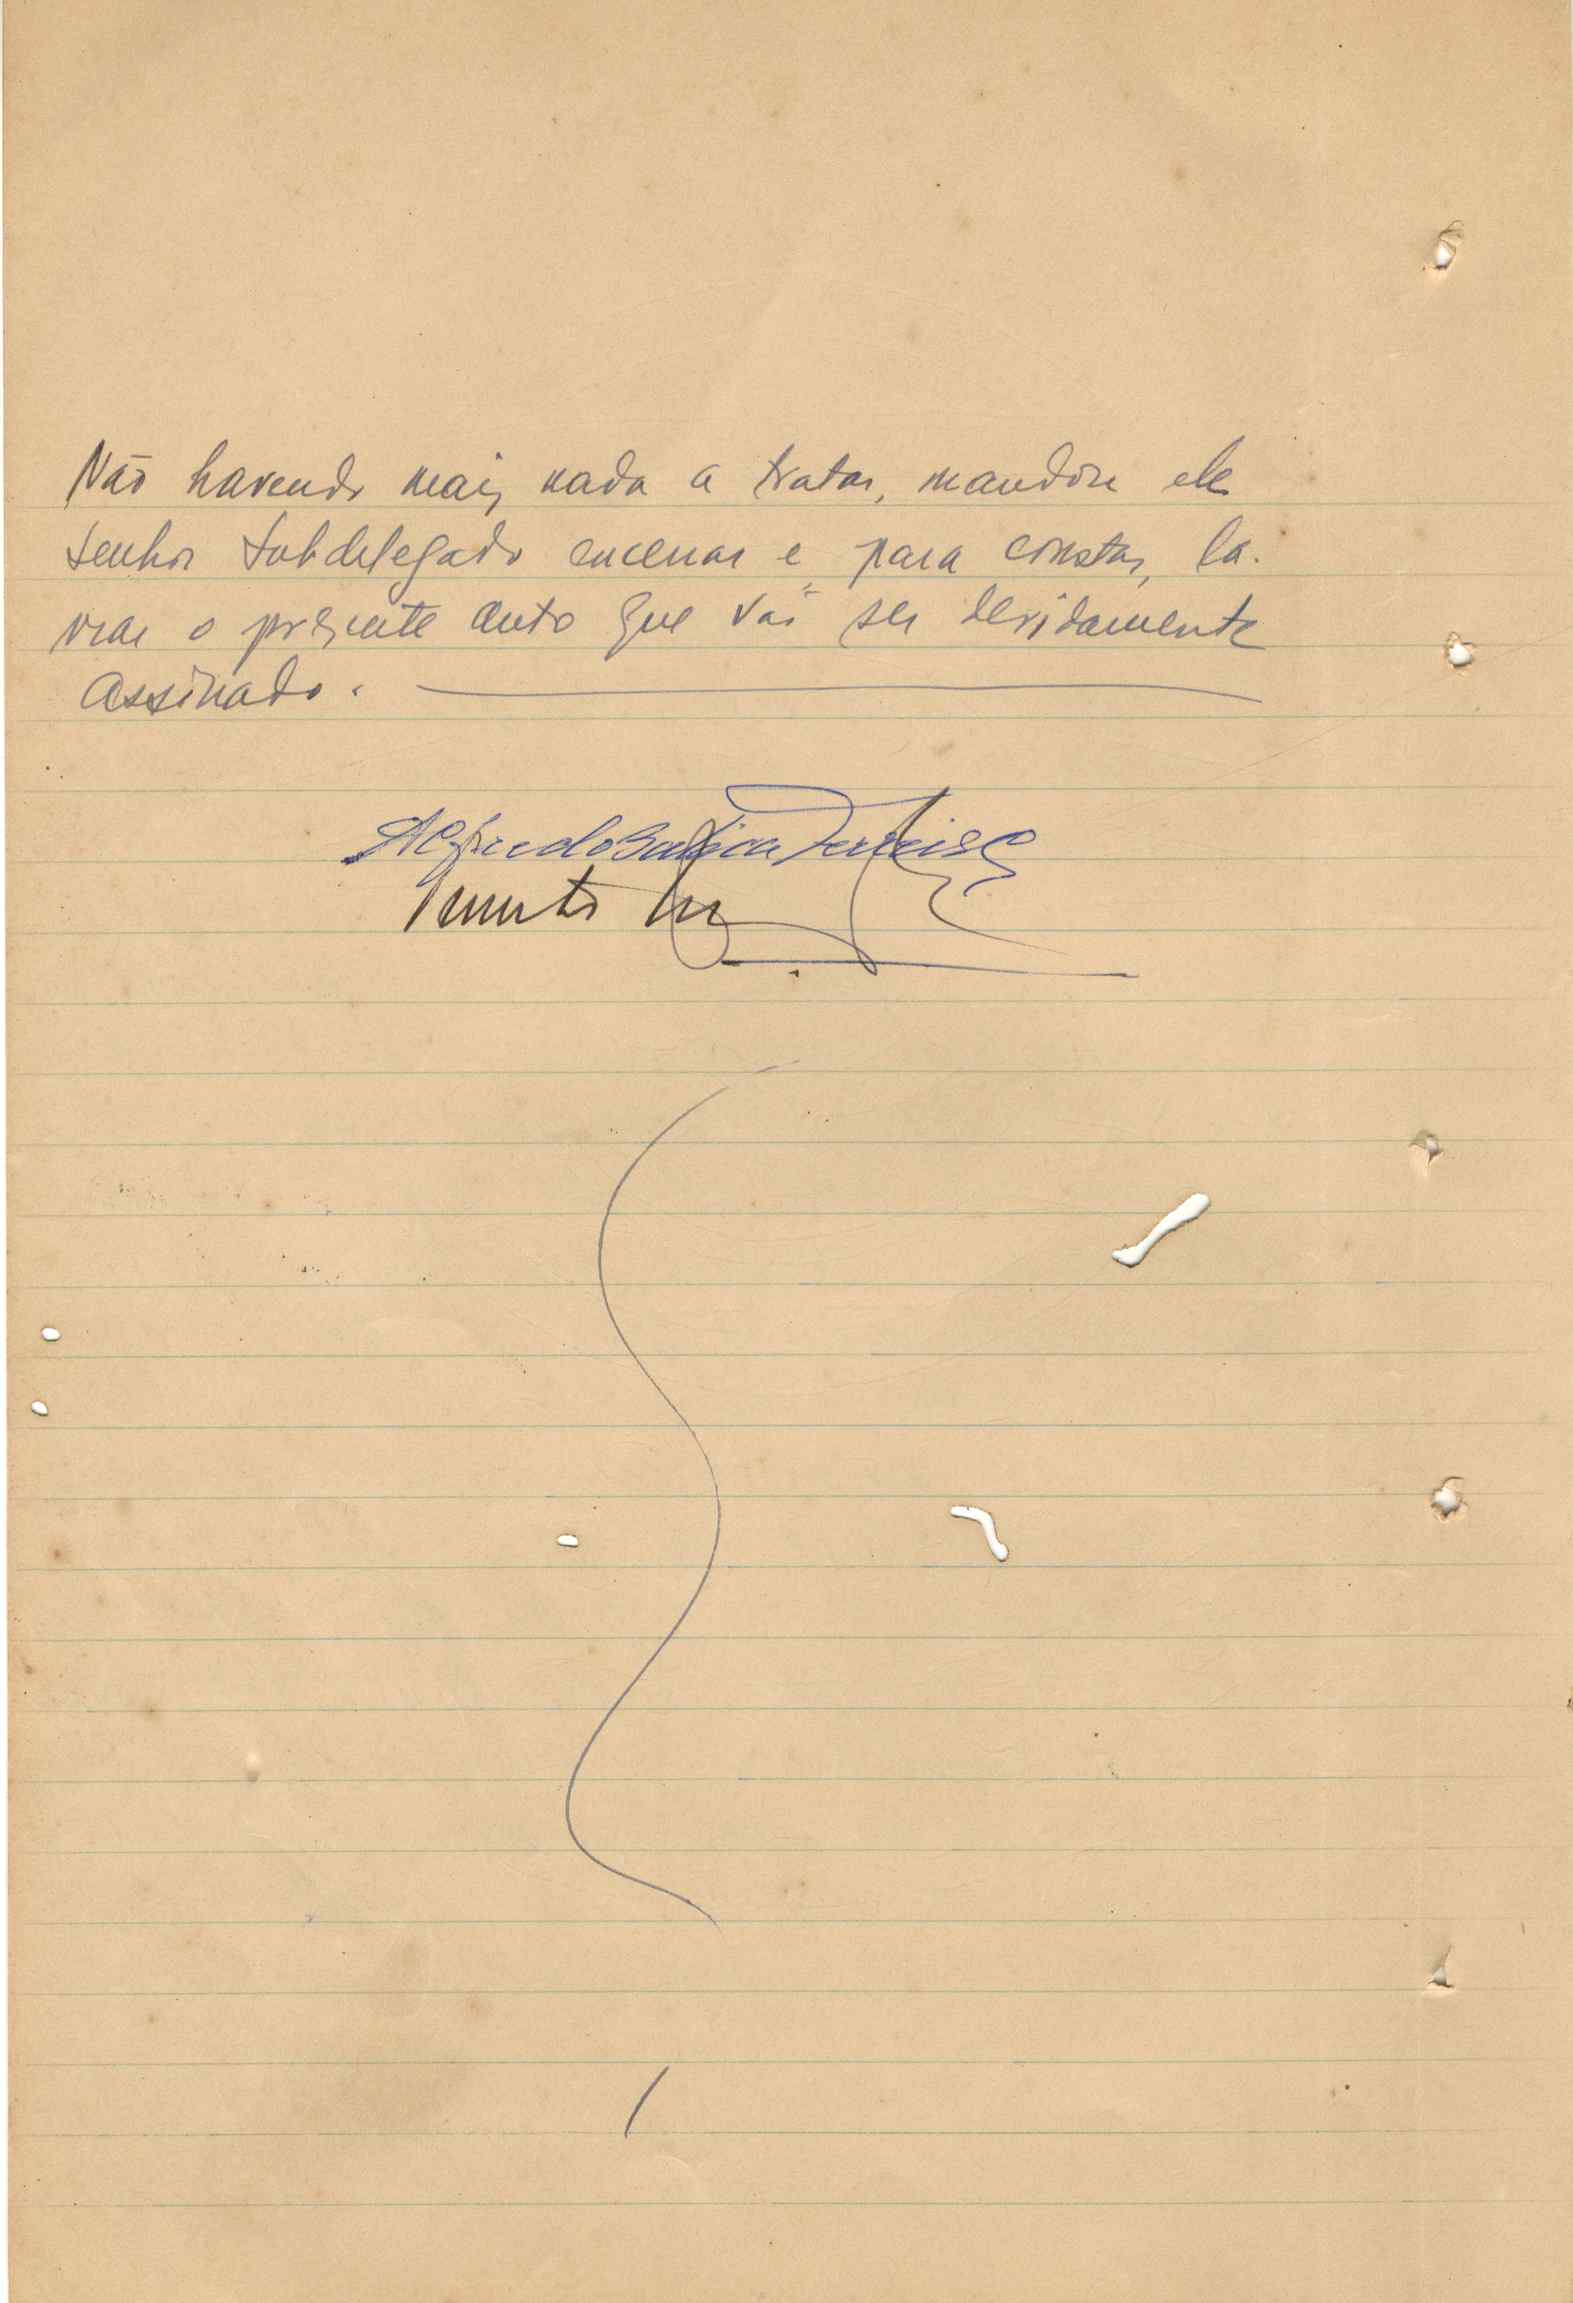 Não havendo mais nada a tratar, mandou ele
senhor Subdelegado encerrar e, para constar, la-
vrar o presente auto que vai ser devidamente
assinado.
Alfredo